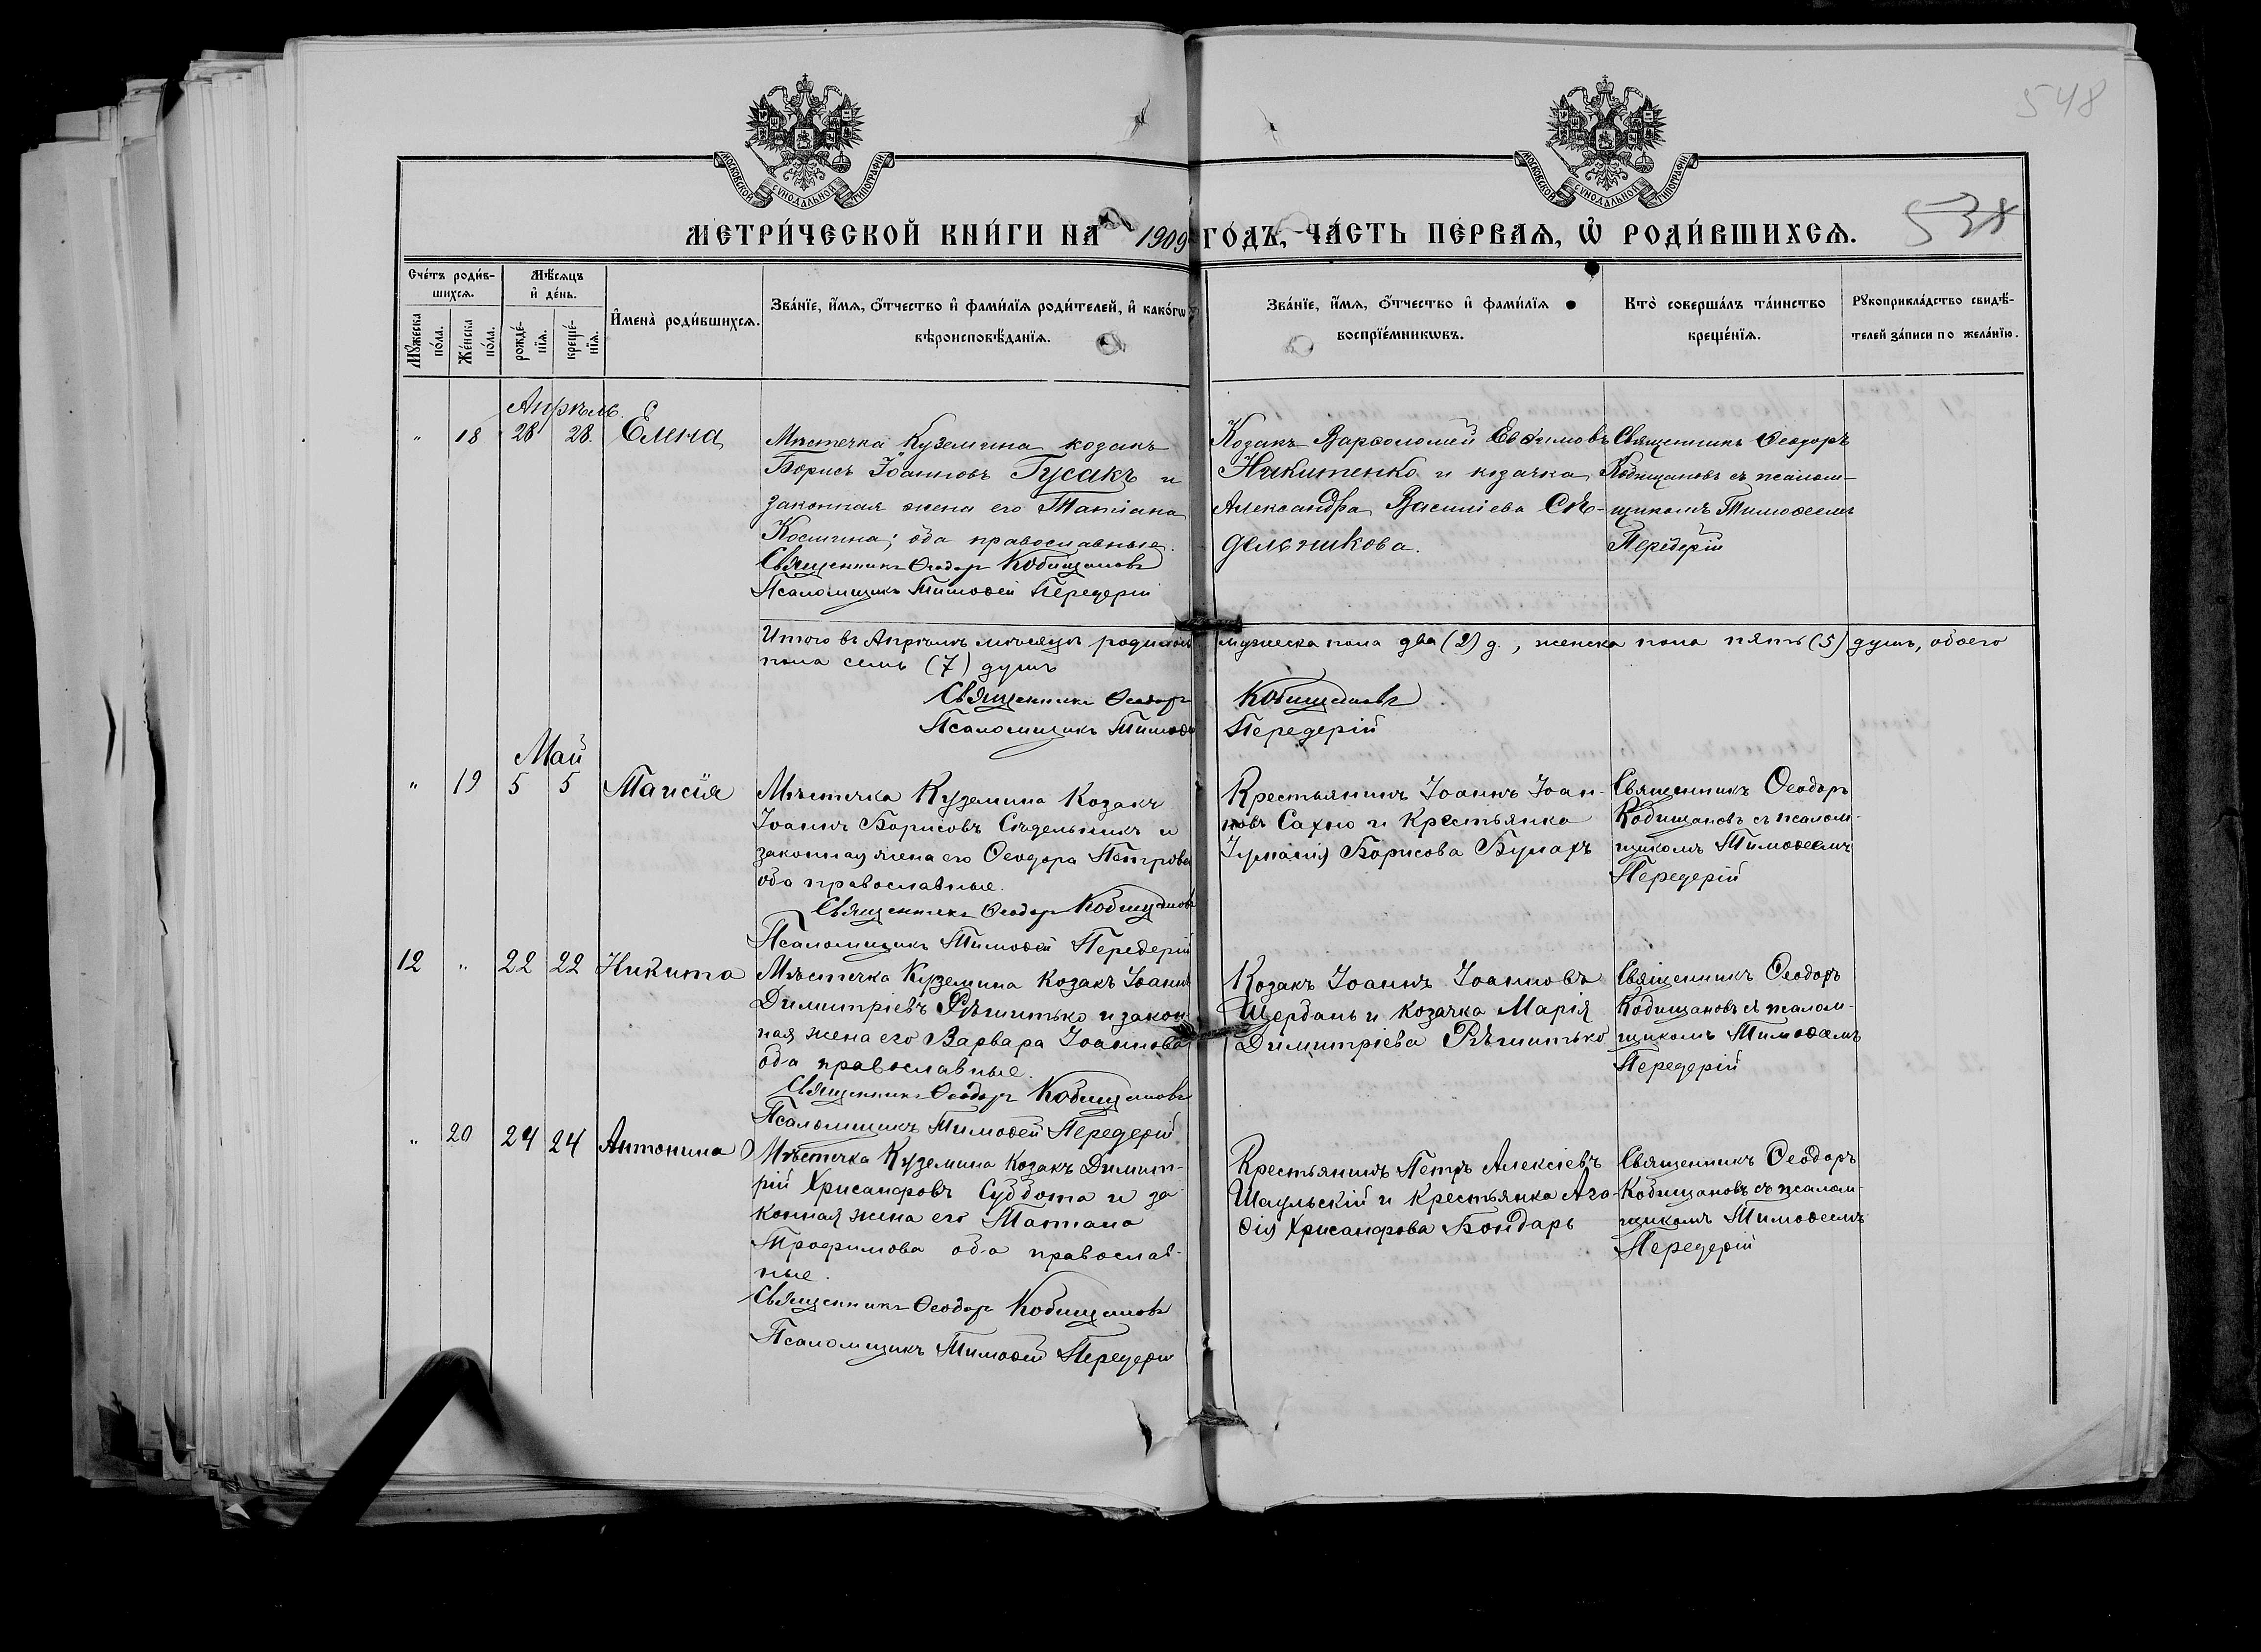 548
МОСКОВСКОЙ СѴНОДАЛЬНОЙ ТИПОГРАФІИ
МОСКОВСКОЙ СѴНОДАЛЬНОЙ ТИПОГРАФІИ
МЕТРИ́ЧЕСКОЙ КНИ́ГИ НА 1909 ГО́ДЪ, ЧА́СТЬ ПЕ́РВАЯ, Ѡ҆ РОДИ́ВШИХСЯ.
538
Сче́тъ роди́в-
шихся.
Мꙋ́жеска
по́ла.
Же́нска
по́ла.
Мѣ́сяцъ
и҆ де́нь.
рожде́-
нїя.
креще́-
нїя.
И҆мена̀ роди́вшихся.
Зва́нїе, и҆́мя, ѻ҆́тчество и҆ фами́лїя роди́телей, и҆ како́гѡ
вѣроисповѣ́данїя.
Зва́нїе, и҆́мя, ѻ҆́тчество и҆ фами́лїя
воспрїе́мникѡвъ.
Кто̀ соверша́лъ та́инство
креще́нїя.
Рꙋкоприкла́дство свидѣ́-
телей за́писи по жела́нїю.
Апрѣль.
" 18 28 28. Елена
Мѣстечка Куземина козакъ
Борисъ Іоанновъ Гусакъ и
законная жена его Татіана
Космина; оба православные.
Священникъ Ѳеодоръ Кобищановъ
Псаломщикъ Тимоѳей Передерій
Козакъ Варѳоломей Евѳимовъ
Никитенко и козачка
Александра Василіева Сѣ-
дельникова.
Священникъ Ѳеодоръ
Кобищановъ съ псалом-
щикомъ Тимоѳеемъ
Передерій
Итого въ Апрѣлѣ мѣсяцѣ родилось мужеска пола два (2) д., женска пола пять (5) душъ, обоего
пола семь (7) душъ
Священникъ Ѳеодоръ Кобищановъ
Псаломщикъ Тимоѳей Передерій
Май
" 19 5 5 Таисія
Мѣстечка Куземина Козакъ
Іоаннъ Борисовъ Сѣдельникъ и
законная жена его Ѳеодора Петрова
оба православные.
Священникъ Ѳеодоръ Кобищановъ
Псаломщикъ Тимоѳей Передерій
Крестьянинъ Іоаннъ Іоан-
новъ Сахно и Крестьянка
Борисова
Священникъ Ѳеодоръ
Кобищановъ съ псалом-
щикомъ Тимоѳеемъ
Передерій
12 " 22 22 Никита
Мѣстечка Куземина Козакъ Іоаннъ
Димитріевъ Рѣшитько и закон
ная жена его Варвара Іоаннова
оба православные.
Священникъ Ѳеодоръ Кобищановъ
Псаломщикъ Тимоѳей Передерій
Козакъ Іоаннъ Іоанновъ
Щербань и Козачка Марія
Димитріева Рѣшитько
Священникъ Ѳеодоръ
Кобищановъ съ псалом-
щикомъ Тимоѳеемъ
Передерій
" 20 24 24 Антонина
Мѣстечка Куземина Козакъ Димит-
рій Хрисанфовъ Суббота и за
конная жена его Татіана
Трофимова оба православ-
ные.
Священникъ Ѳеодоръ Кобищановъ
Псаломщикъ Тимоѳей Передерій
Крестьянинъ Петръ Алексіевъ
Шаульскій и Крестьянка Ага-
ѳія Хрисанфова Бондарь
Священникъ Ѳеодоръ
Кобищановъ съ псалом-
щикомъ Тимоѳеемъ
Передерій